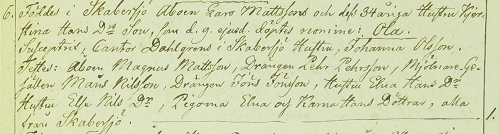 6. Föddes i Skabersjö Aboen Lars Mattssons och dess 34 åriga Hustru Kjer-
stina Hans Dr Son, som d. 9. ejusd. döptes nomine: Ola.
Susceptrix, Cantor Dahlgrens i Skabersjö Hustru, Johanna Olsson,
Testes: Aboen Magnus Mattsson, Drängen Pehr Pehrsson, Mjölnare Ge-
sällen Måns Nilsson, Drängen Jöns Jönsson, Hustru Elna Hans Dr
Hustru Else Nils Dr, Pigorna Elna och Karna Hans Döttrar, alla
från Skabersjö. 1.